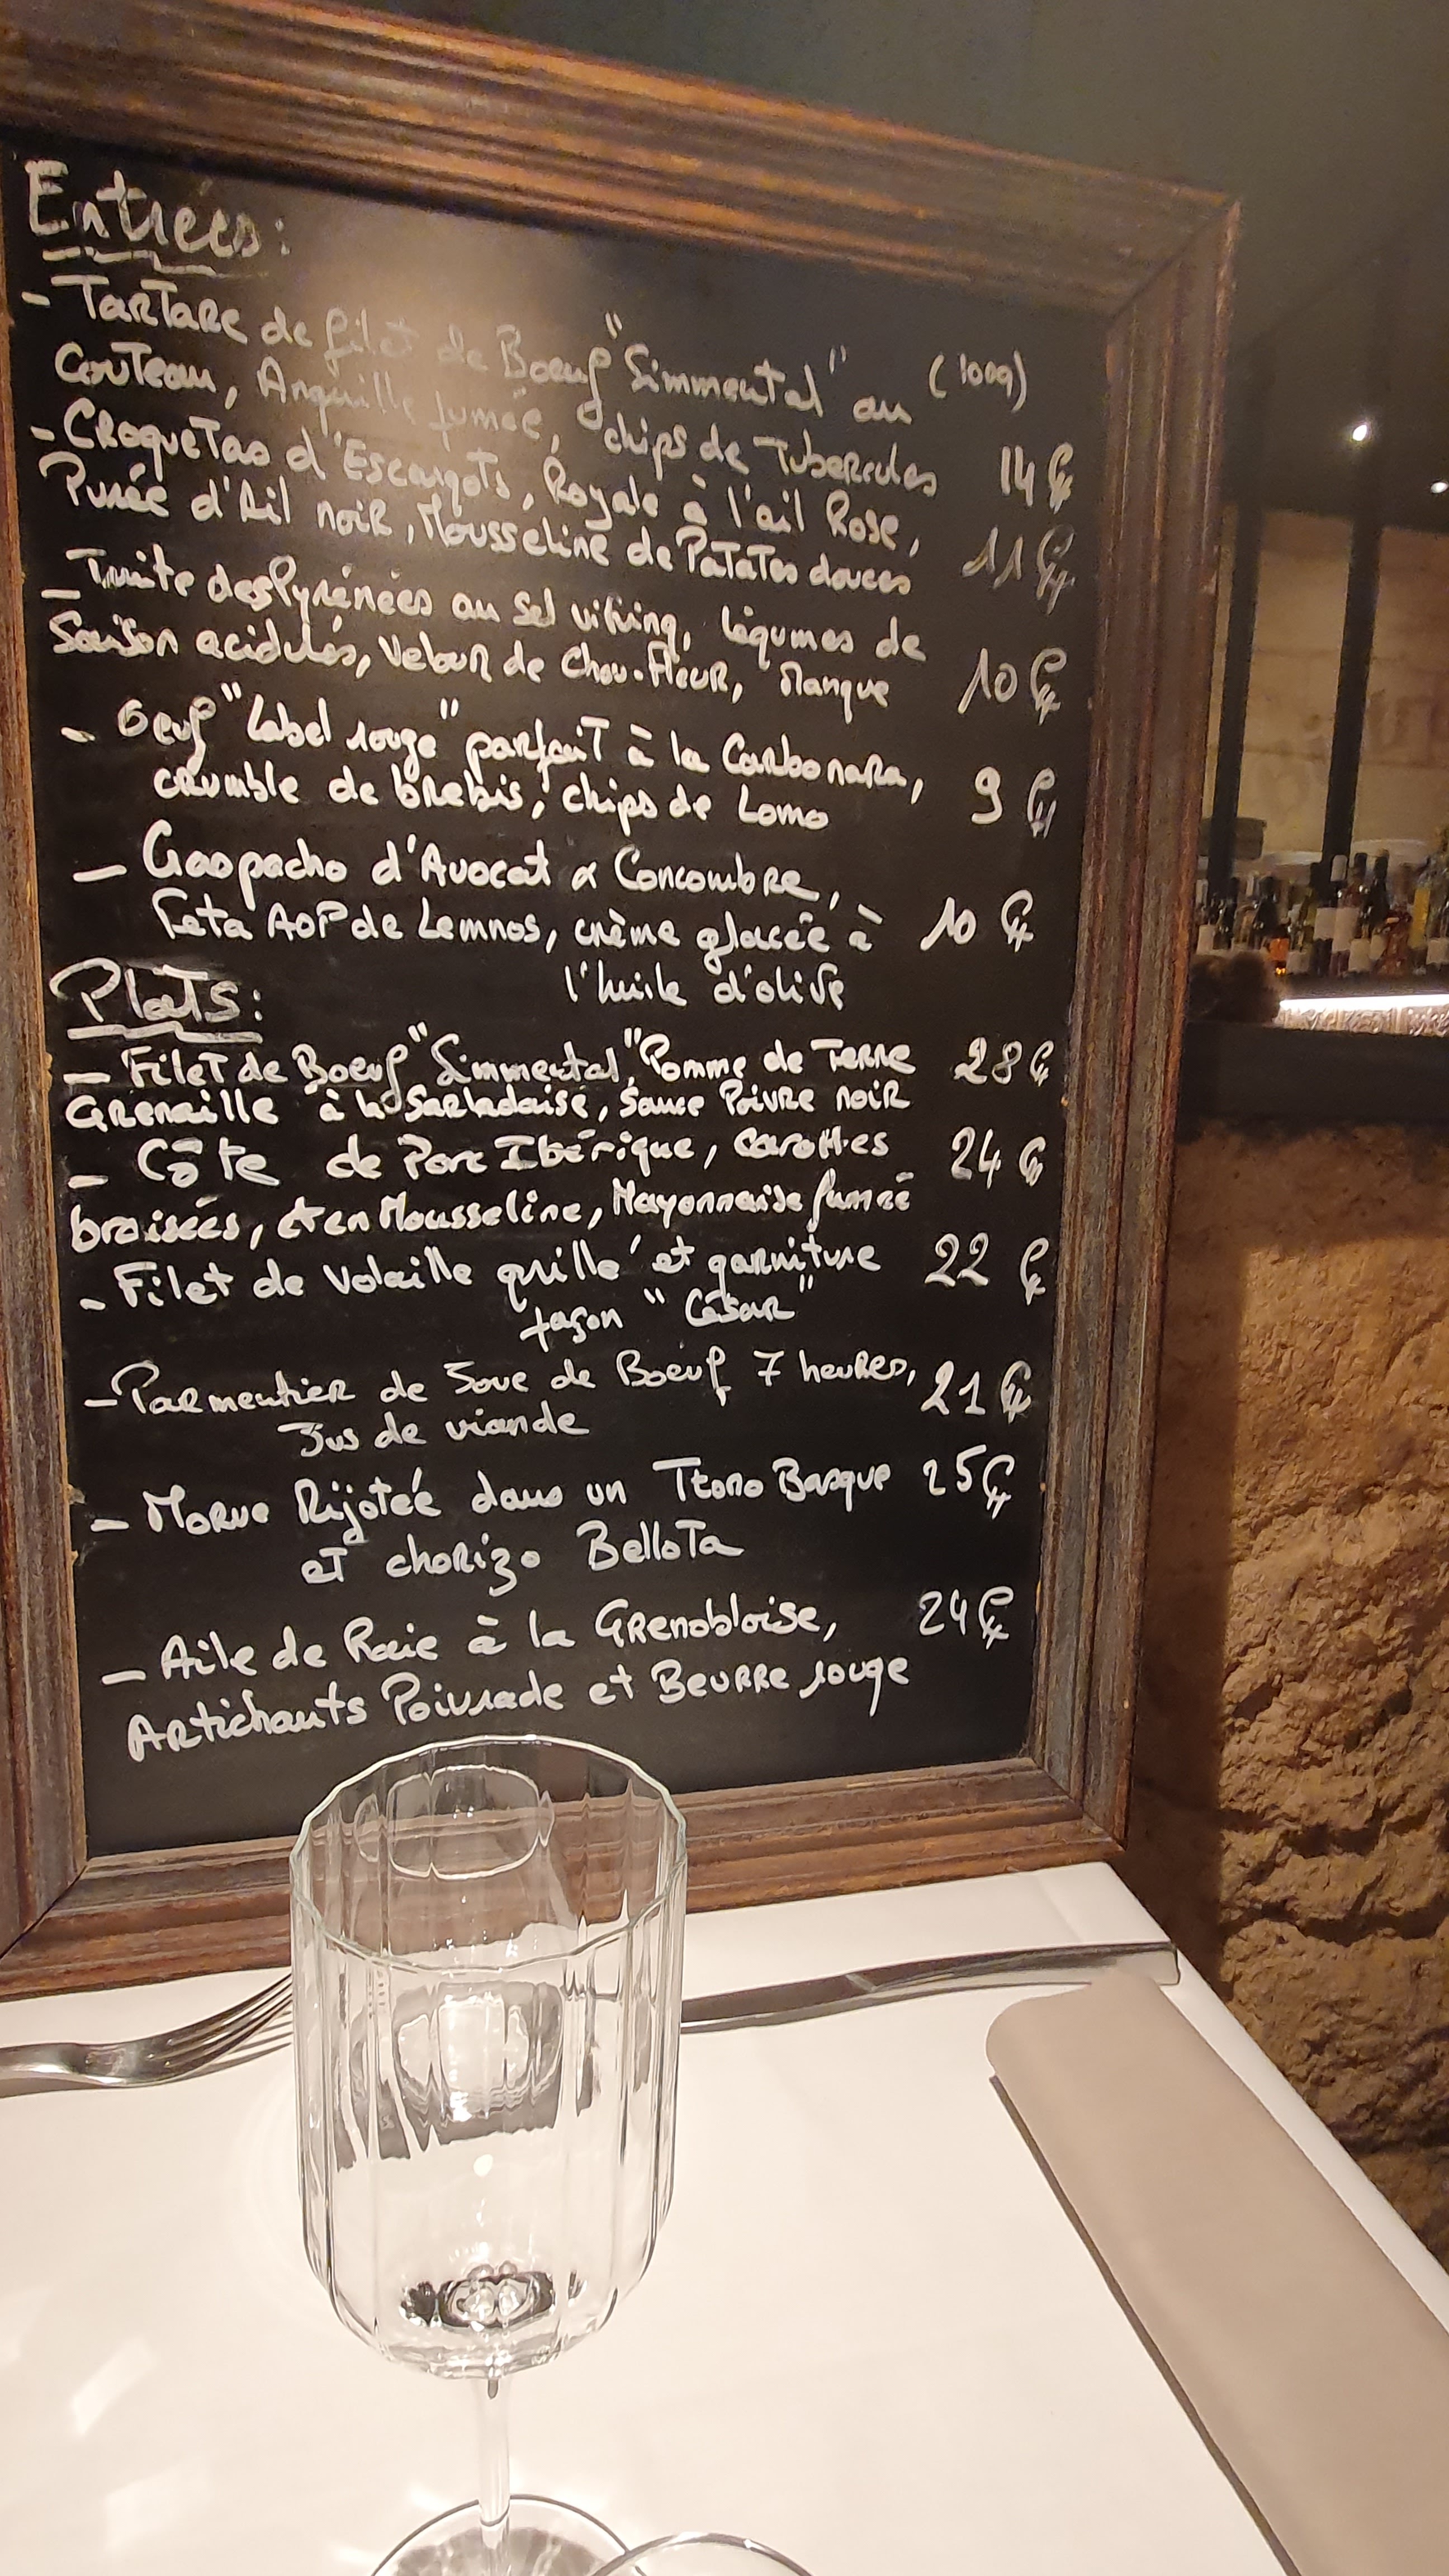 Entrées:
- Tartare de filet de Boeuf "Simmental" au (100g)
Couteau, Anguille fumée, chips de Tubercules 14 €
- Croquetas d'Escargots, Royale à l'ail Rose,
Purée d'Ail noir, Mousseline de Patates douces 11 €
- Truite des Pyrénées au Sel viking, légumes de
Saison acidulés, Velour de Chou-Fleur, Mangue 10 €
- Oeuf "Label rouge" parfait à la Carbonara,
crumble de brebis, chips de Lomo 9 €
- Gaspacho d'Avocat & Concombre,
Feta AOP de Lemnos, crème glacée à 10 €
l'huile d'olive
Plats:
- Filet de Boeuf "Simmental", Pomme de Terre 28 €
Grenaille à la Sarladaise, Sauce Poivre noir
- Côte de Porc Ibérique, carottes 24 €
braisées, et en Mousseline, Mayonnaise fumée
- Filet de Volaille grillé et garniture 22 €
façon "César"
- Parmentier de Joue de Boeuf 7 heures, 21 €
Jus de viande
- Morue Rijotée dans un Ttoro Basque 25 €
et chorizo Bellota
- Aile de Raie à la Grenobloise, 24 €
Artichauts Poivrade et Beurre rouge